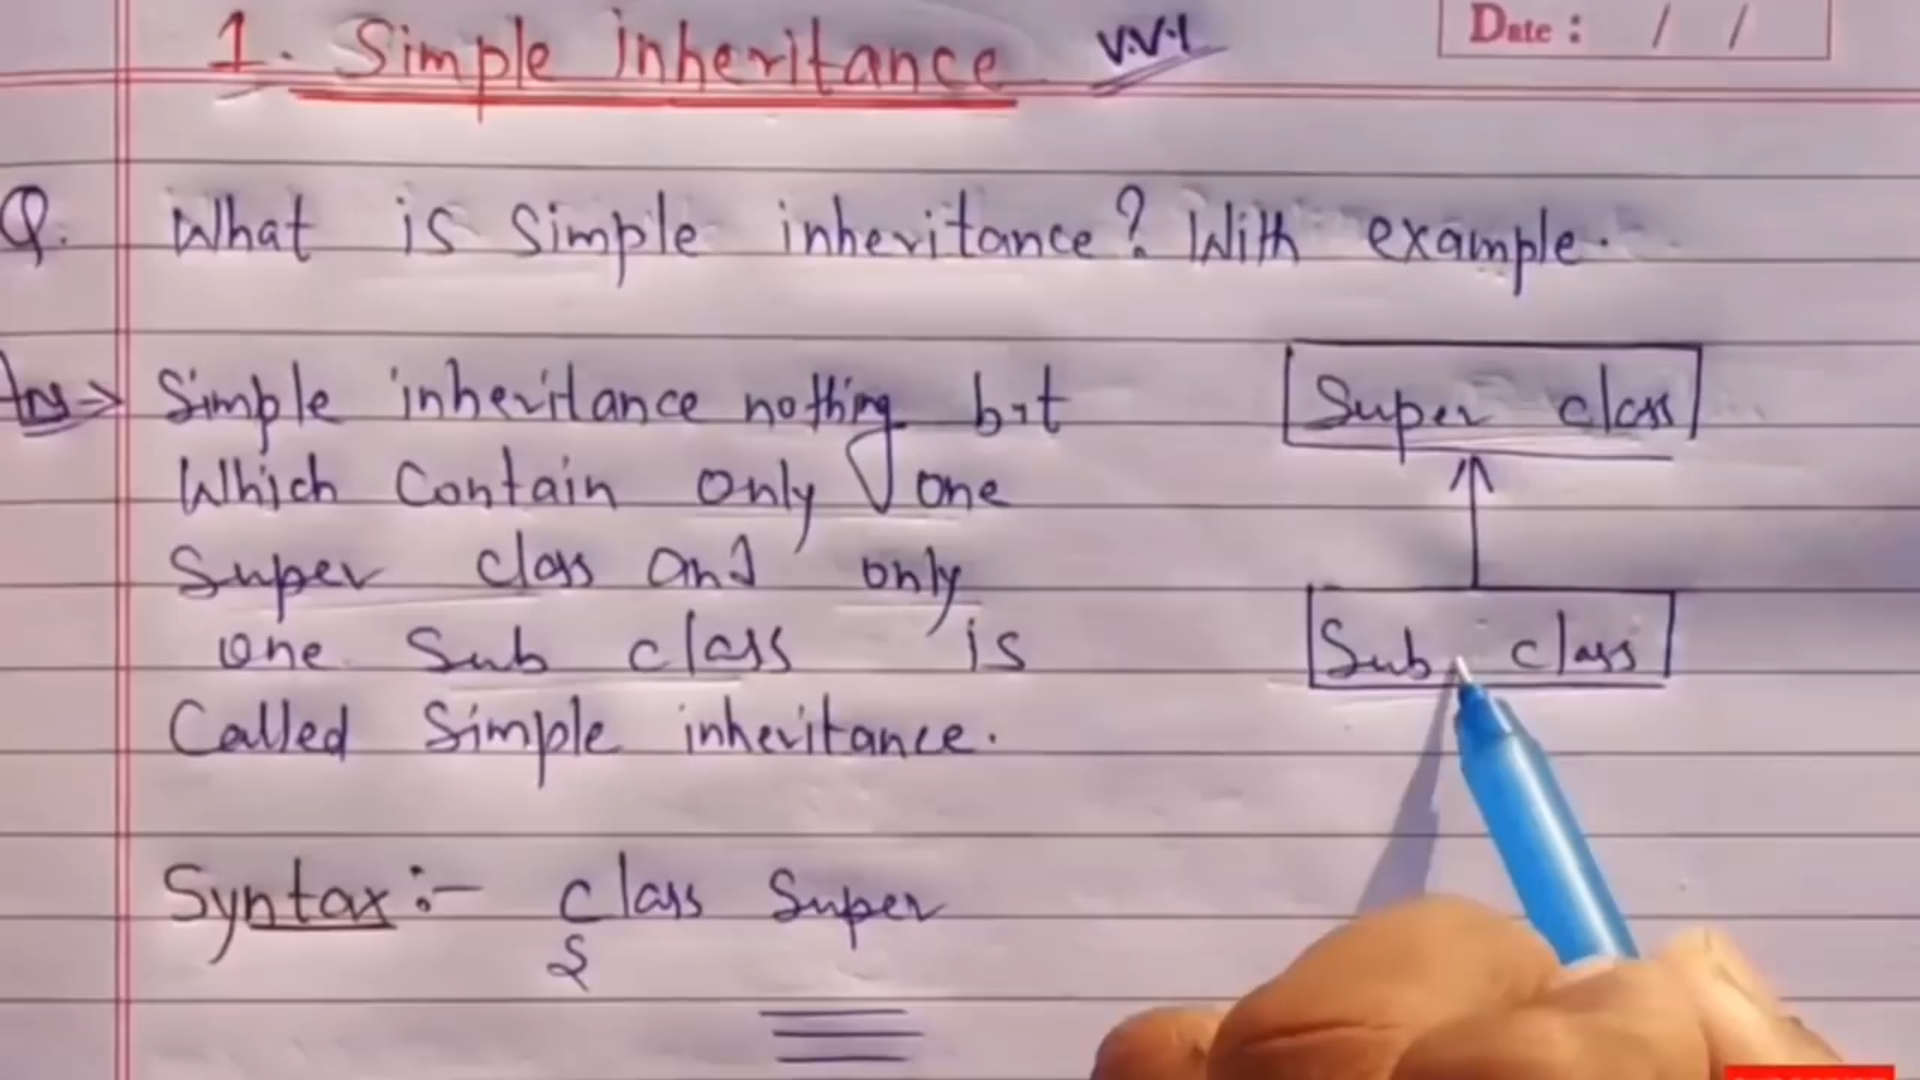 Date : / /
1. Simple inheritance V.V.I
Q. What is Simple inheritance? With example.
Ans-> Simple inheritance nothing but
Which Contain only one
Super class and only
one Sub class is
Called Simple inheritance.
Super class
Sub class
Syntax:- class Super
{